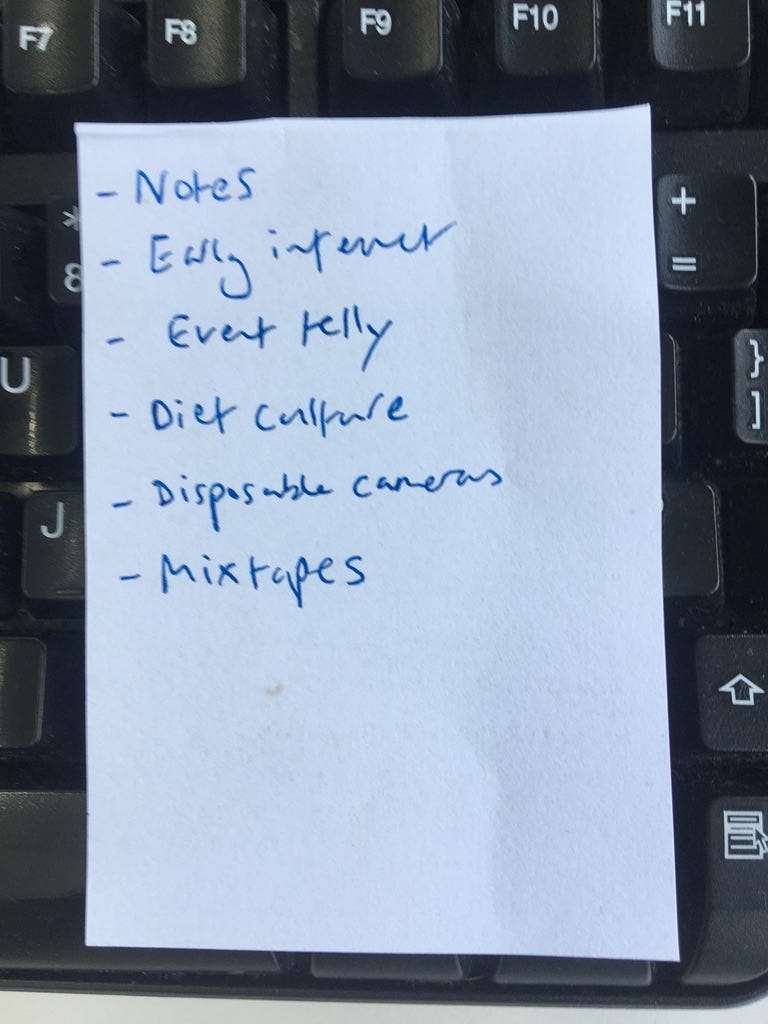 F7 F8 F9 F10 F11
- Notes
* 8
+ =
- Early internet
- Event telly
U
} ]
- Diet culture
- Disposable cameras
J
- Mixtapes